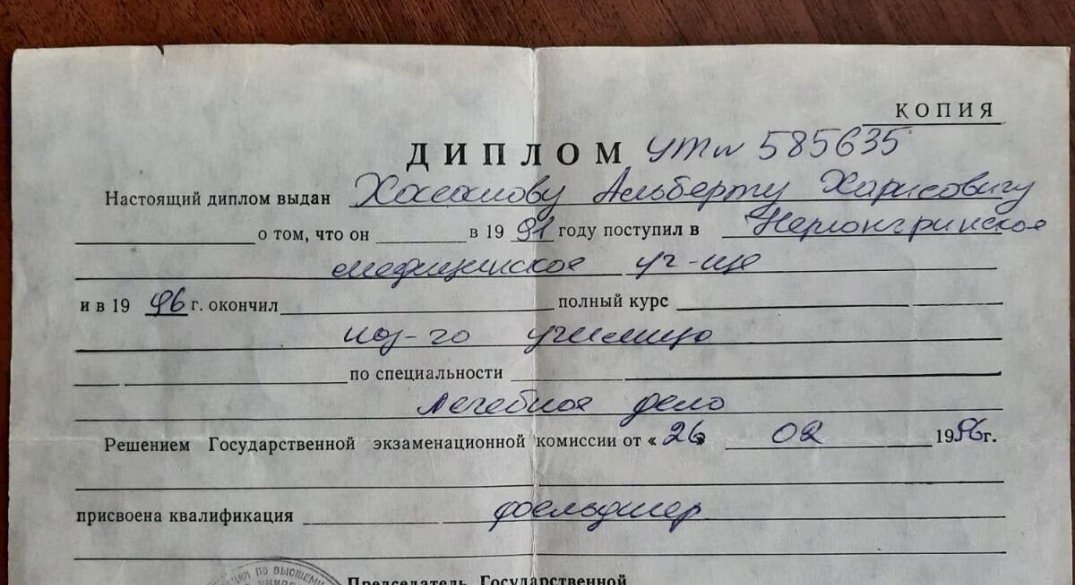 КОПИЯ
ДИПЛОМ УТ № 585635
Настоящий диплом выдан Хасанову Альберту Харисовичу
о том, что он в 1991 году поступил в Нерюнгринское
медицинское уч-ще
и в 1996 г. окончил полный курс
наз-го училища
по специальности
Лечебное дело
Решением Государственной экзаменационной комиссии от « 26 02 1996г.
присвоена квалификация фельдшер
Председатель Государственной